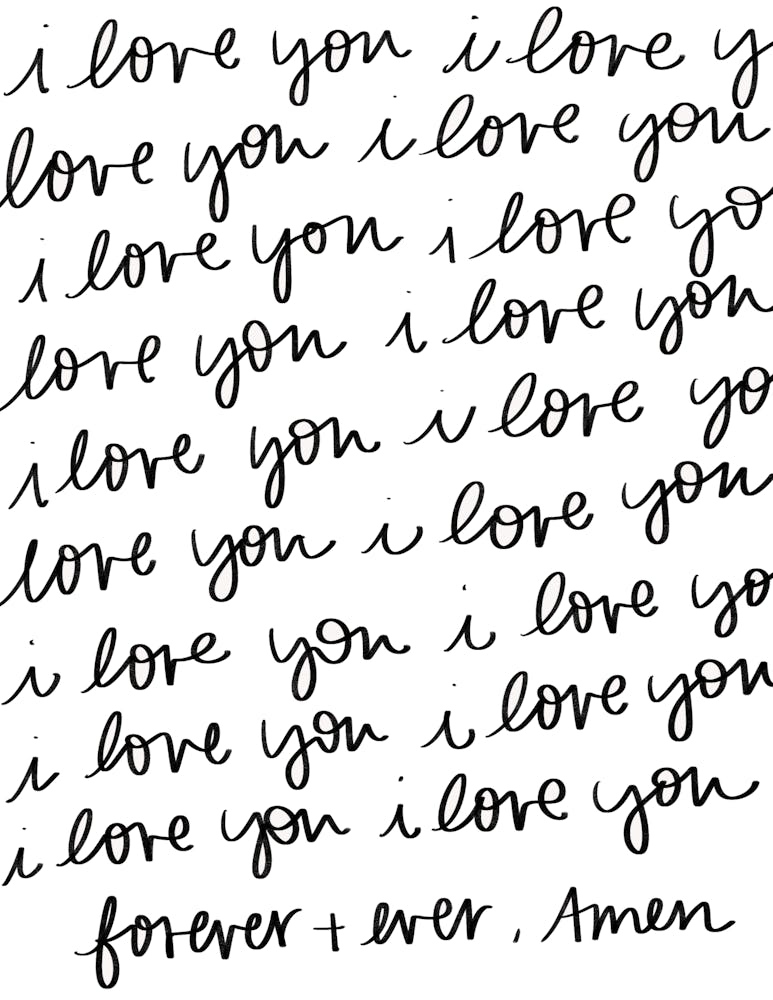 i love you i love y
love you i love you
i love you i love yo
love you i love you
i love you i love yo
love you i love you
i love you i love yo
i love you i love you
i love you i love you
forever + ever, Amen